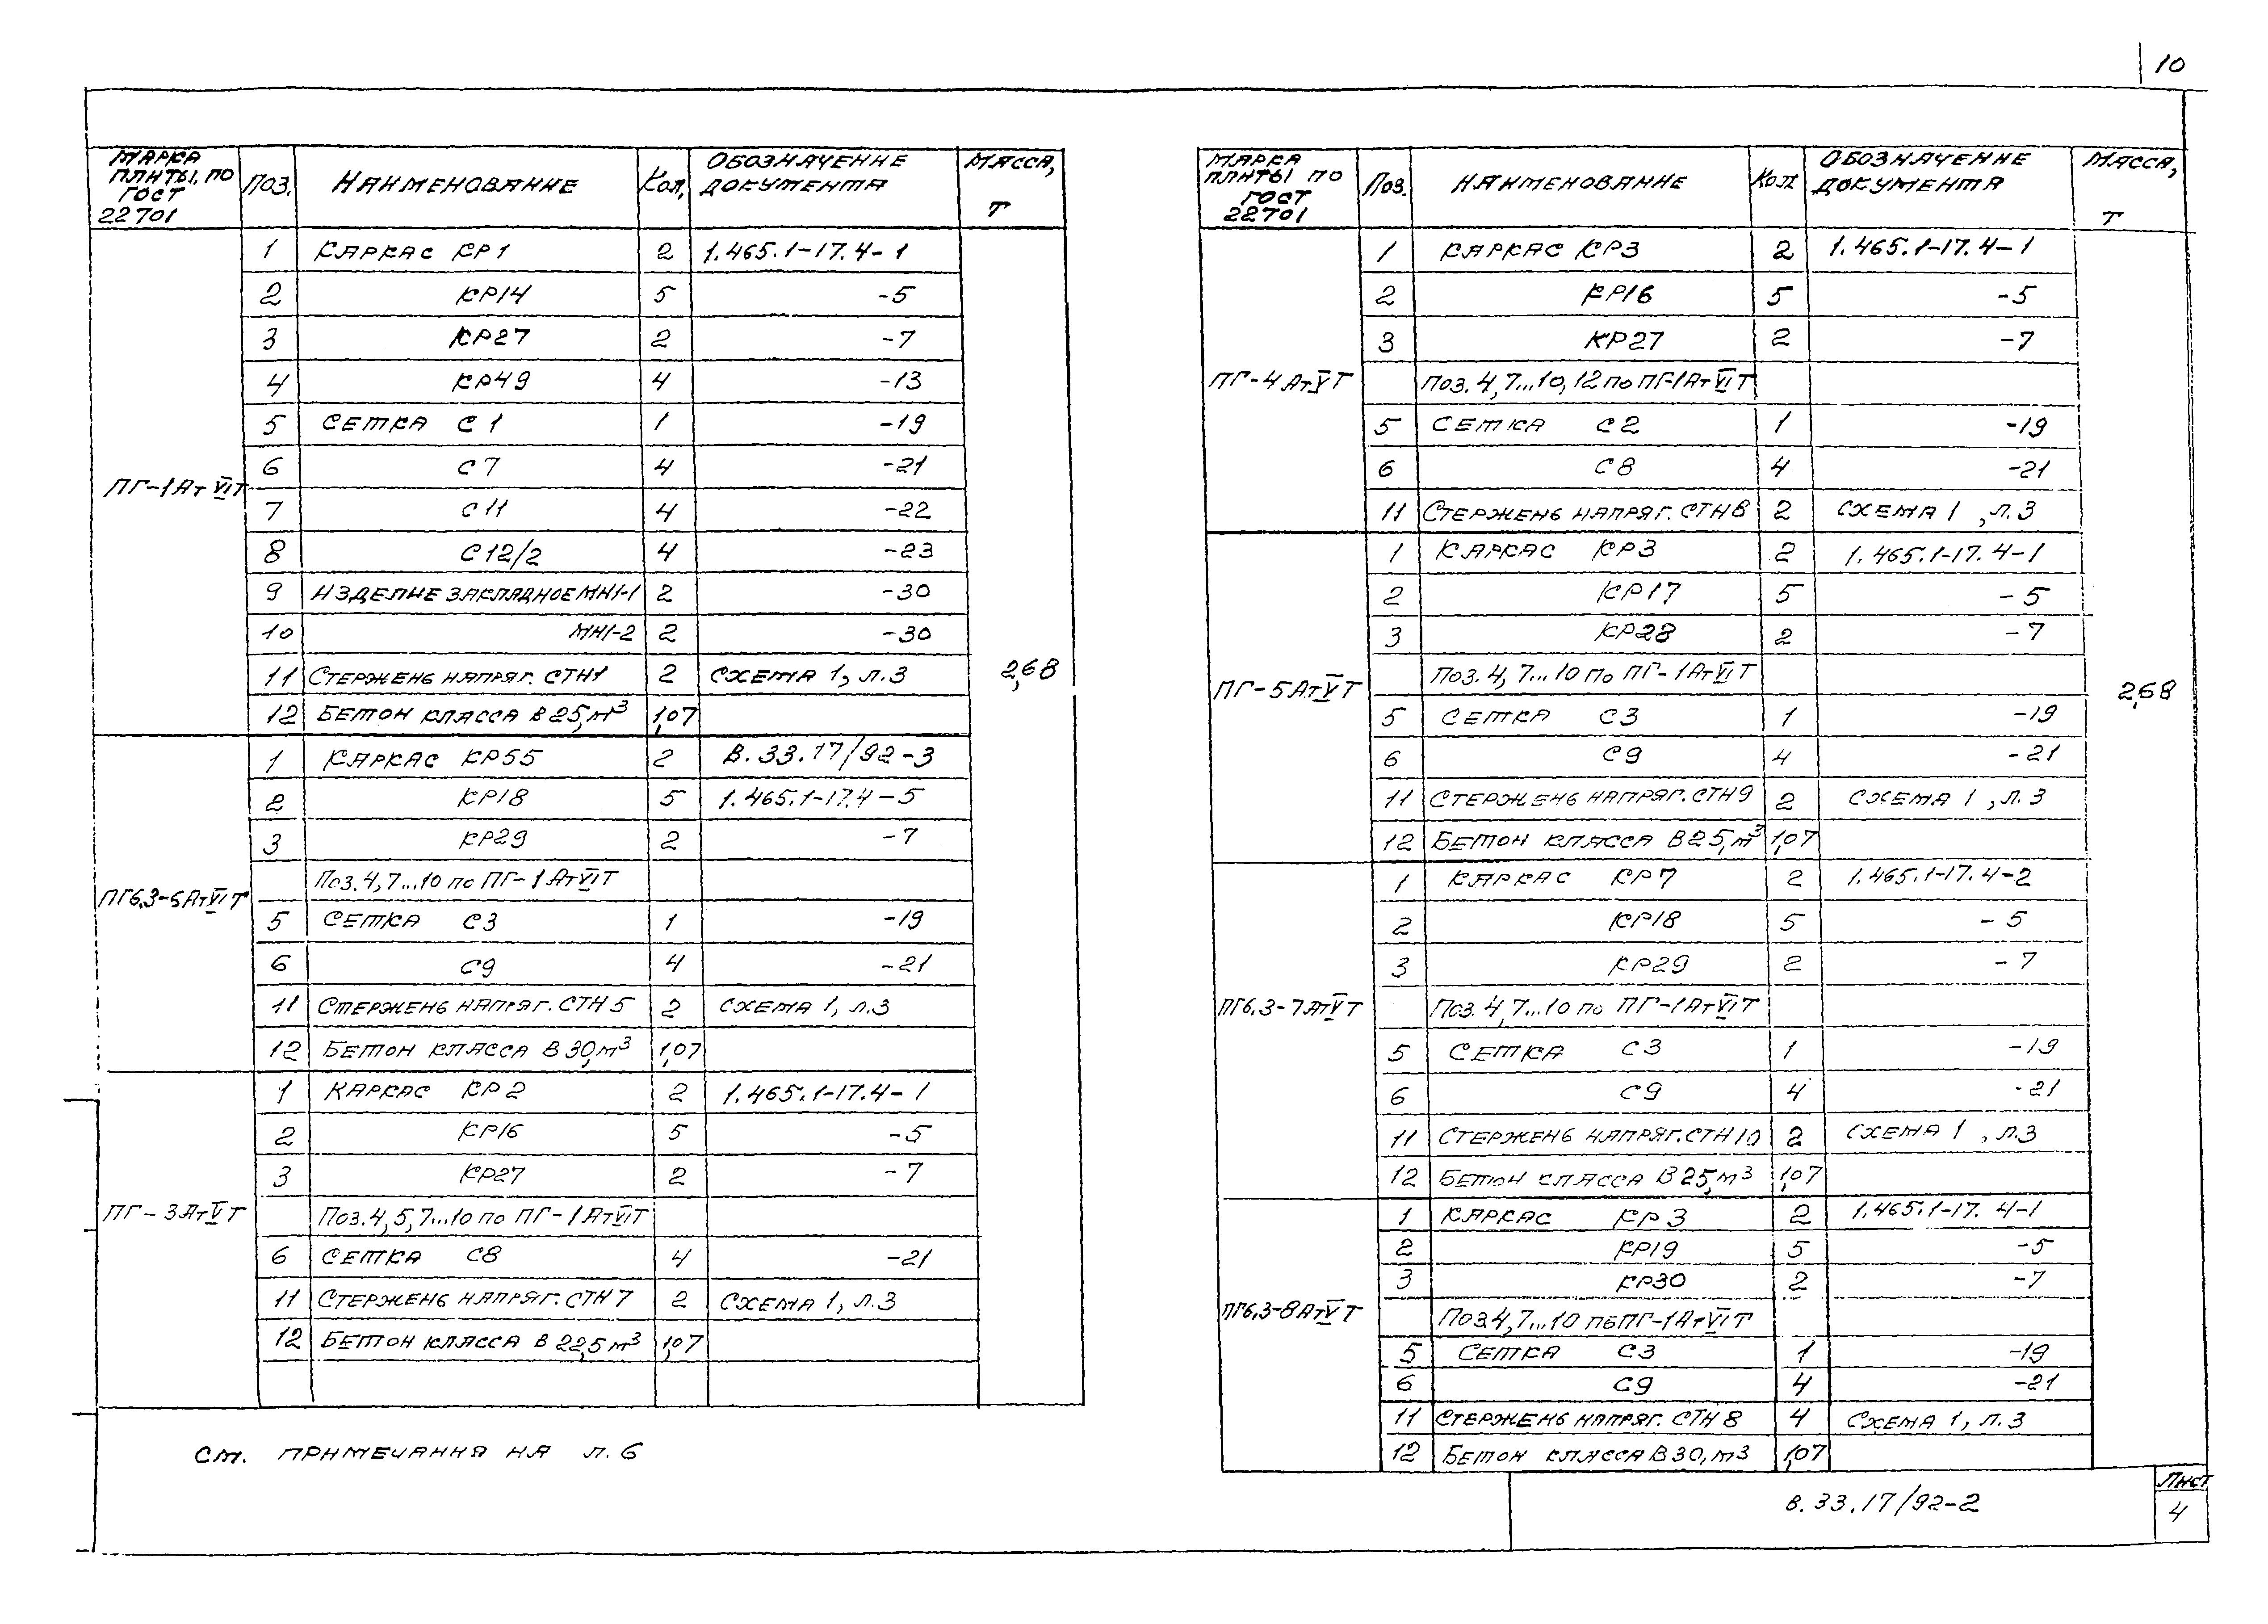 10
МАРКА ПЛИТЫ, ПО ГОСТ 22701 | ПОЗ. | НАИМЕНОВАНИЕ | КОЛ. | ОБОЗНАЧЕНИЕ ДОКУМЕНТА | МАССА, Т
ПГ-1АтVIТ
1 | КАРКАС КР1 | 2 | 1.465.1-17.4-1
2 | КР14 | 5 | -5
3 | КР27 | 2 | -7
4 | КР49 | 4 | -13
5 | СЕТКА С1 | 1 | -19
6 | С7 | 4 | -21
7 | С11 | 4 | -22
8 | С12/2 | 4 | -23
9 | ИЗДЕЛИЕ ЗАКЛАДНОЕ МН1-1 | 2 | -30
10 | МН1-2 | 2 | -30
11 | СТЕРЖЕНЬ НАПРЯГ. СТН1 | 2 | СХЕМА 1, Л.3
2,68
12 | БЕТОН КЛАССА В25, м3 | 1,07
ПГ6.3-5АтVIТ
1 | КАРКАС КР55 | 2 | В.33.17/92-3
2 | КР18 | 5 | 1.465.1-17.4-5
3 | КР29 | 2 | -7
ПОЗ. 4, 7...10 по ПГ-1АтVIТ
5 | СЕТКА С3 | 1 | -19
6 | С9 | 4 | -21
11 | СТЕРЖЕНЬ НАПРЯГ. СТН5 | 2 | СХЕМА 1, Л.3
12 | БЕТОН КЛАССА В30, м3 | 1,07
ПГ-3АтVТ
1 | КАРКАС КР2 | 2 | 1.465.1-17.4-1
2 | КР16 | 5 | -5
3 | КР27 | 2 | -7
ПОЗ. 4, 5, 7...10 по ПГ-1АтVIТ
6 | СЕТКА С8 | 4 | -21
11 | СТЕРЖЕНЬ НАПРЯГ. СТН7 | 2 | СХЕМА 1, Л.3
12 | БЕТОН КЛАССА В22,5 м3 | 1,07
Ст. ПРИМЕЧАНИЯ НА Л.6
МАРКА ПЛИТЫ ПО ГОСТ 22701 | ПОЗ. | НАИМЕНОВАНИЕ | КОЛ | ОБОЗНАЧЕНИЕ ДОКУМЕНТА | МАССА, Т
ПГ-4АтVТ
1 | КАРКАС КР3 | 2 | 1.465.1-17.4-1
2 | КР16 | 5 | -5
3 | КР27 | 2 | -7
ПОЗ. 4, 7...10, 12 по ПГ-1АтVIТ
5 | СЕТКА С2 | 1 | -19
6 | С8 | 4 | -21
11 | СТЕРЖЕНЬ НАПРЯГ. СТН8 | 2 | СХЕМА 1, Л.3
ПГ-5АтVТ
1 | КАРКАС КР3 | 2 | 1.465.1-17.4-1
2 | КР17 | 5 | -5
3 | КР28 | 2 | -7
ПОЗ. 4, 7...10 по ПГ-1АтVIТ
2,68
5 | СЕТКА С3 | 1 | -19
6 | С9 | 4 | -21
11 | СТЕРЖЕНЬ НАПРЯГ. СТН9 | 2 | СХЕМА 1, Л.3
12 | БЕТОН КЛАССА В25, м3 | 1,07
ПГ6.3-7АтVТ
1 | КАРКАС КР7 | 2 | 1.465.1-17.4-2
2 | КР18 | 5 | -5
3 | КР29 | 2 | -7
ПОЗ. 4, 7...10 по ПГ-1АтVIТ
5 | СЕТКА С3 | 1 | -19
6 | С9 | 4 | -21
11 | СТЕРЖЕНЬ НАПРЯГ. СТН10 | 2 | СХЕМА 1, Л.3
12 | БЕТОН КЛАССА В25, м3 | 1,07
ПГ6.3-8АтVТ
1 | КАРКАС КР3 | 2 | 1.465.1-17.4-1
2 | КР19 | 5 | -5
3 | КР30 | 2 | -7
ПОЗ. 4, 7...10 по ПГ-1АтVIТ
5 | СЕТКА С3 | 1 | -19
6 | С9 | 4 | -21
11 | СТЕРЖЕНЬ НАПРЯГ. СТН8 | 4 | СХЕМА 1, Л.3
12 | БЕТОН КЛАССА В30, м3 | 1,07
В.33.17/92-2
ЛИСТ
4